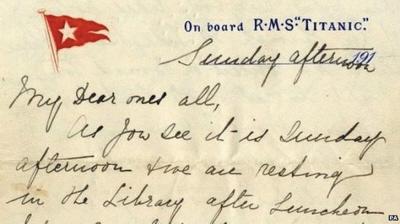 On board R·M·S "TITANIC."
191
Sunday afternoon
My Dear ones all,
As you see it is Sunday
afternoon & we are resting
in the Library after Luncheon
PA